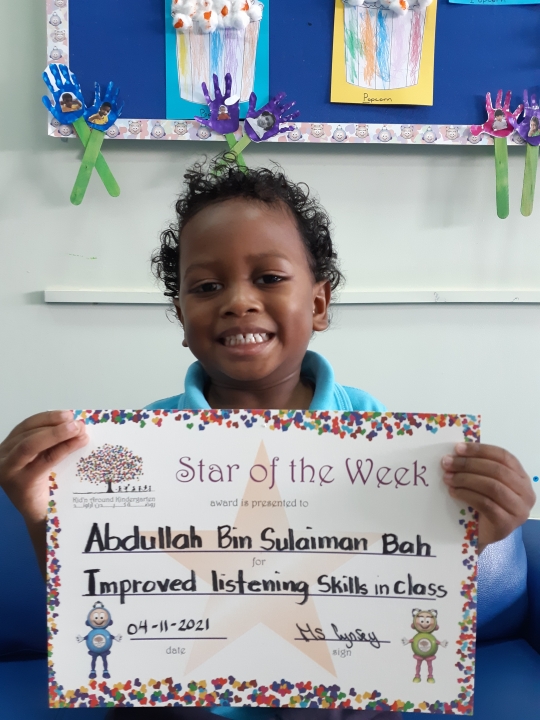 Popcorn
Kid's Around Kindergarten
Star of the Week
award is presented to
Abdullah Bin Sulaiman Bah
for
Improved listening Skills in Class
04-11-2021
date
sign